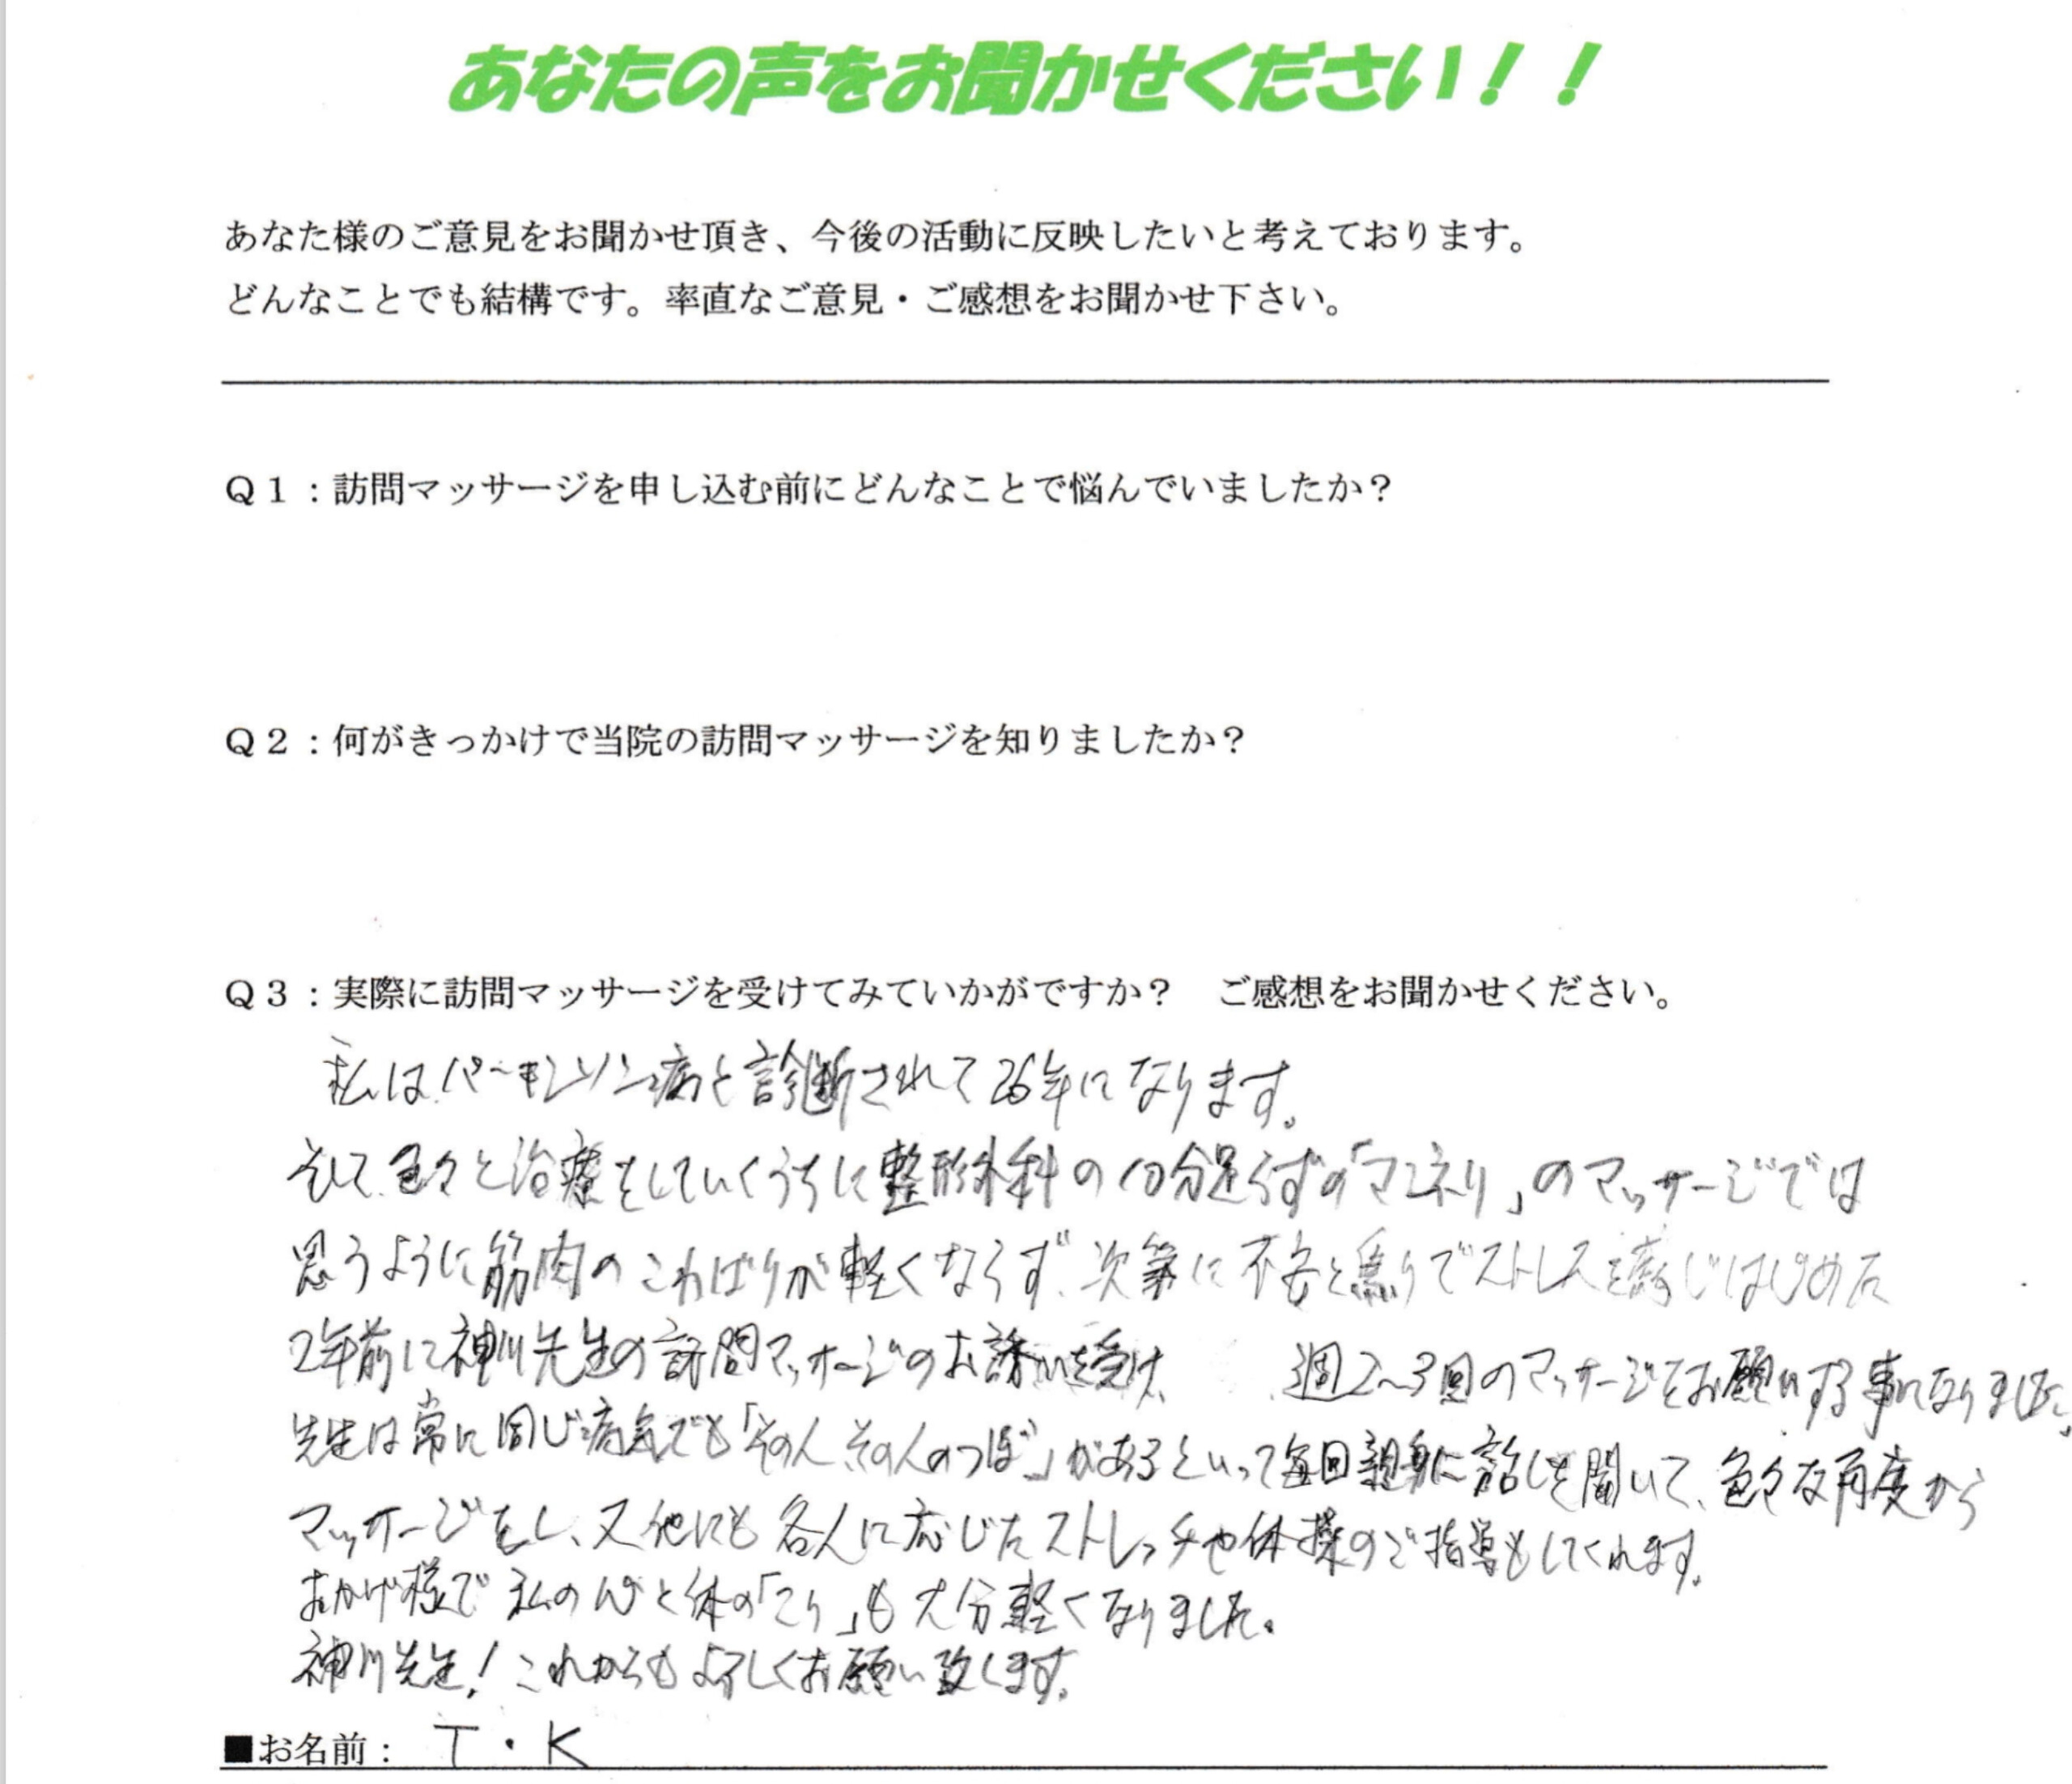 あなたの声をお聞かせください！！
あなた様のご意見をお聞かせ頂き、今後の活動に反映したいと考えております。
どんなことでも結構です。率直なご意見・ご感想をお聞かせ下さい。
Ｑ１：訪問マッサージを申し込む前にどんなことで悩んでいましたか？
Ｑ２：何がきっかけで当院の訪問マッサージを知りましたか？
Ｑ３：実際に訪問マッサージを受けてみていかがですか？　ご感想をお聞かせください。
私はパーキンソン病と診断されて26年になります。
そして、色々と治療をしていくうちに整形外科の10分足らずの「マンネリ」のマッサージでは
思うように筋肉のこわばりが軽くならず、次第に不安と焦りでストレスを感じはじめた
2年前に神川先生の訪問マッサージのお誘いを受け、　週2〜3回のマッサージをお願いする事になりました。
先生は常に同じ病気でも「その人、その人のつぼ」があるといって毎回親身に話しを聞いて、色々な角度から
マッサージをし、又他にも各人に応じたストレッチや体操のご指導もしてくれます。
おかげ様で私の心と体の「こり」も大分軽くなりました。
神川先生！これからもよろしくお願い致します。
■お名前：　T・K